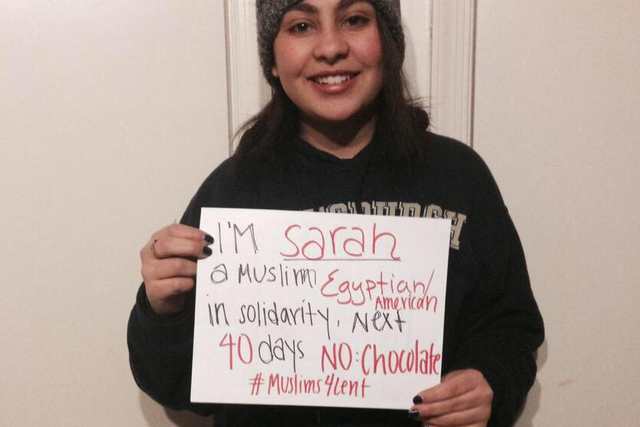 I'M Sarah
a Muslim Egyptian/
American
in solidarity. Next
40 days NO: Chocolate
#Muslims4Lent